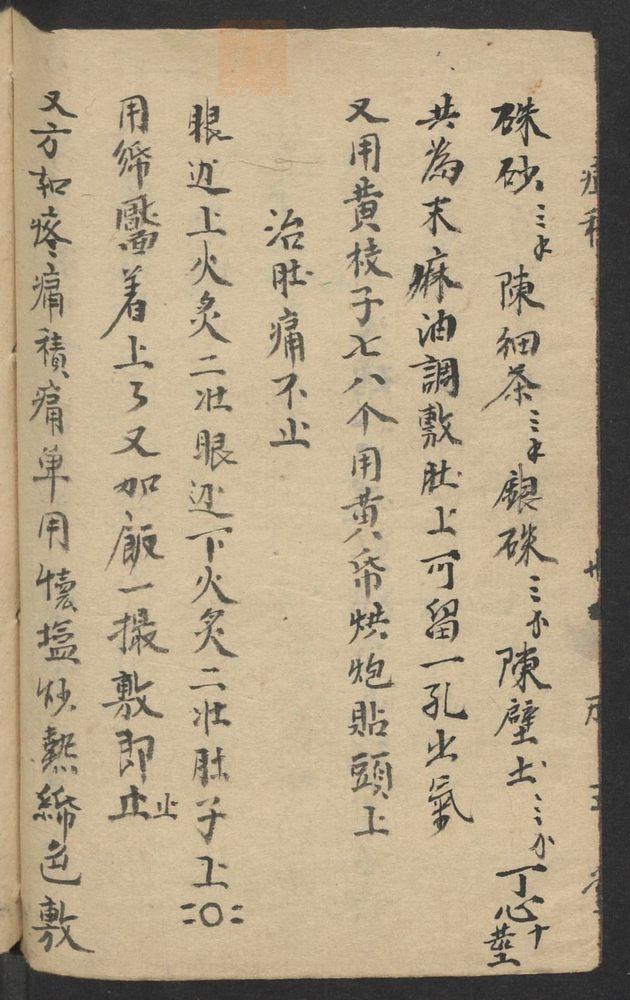 硃砂三分 陳細茶三分 銀硃三分 陳壁土三分 丁心十
共為末痳油調敷肚上可留一孔出氣
又用黃枝子七八个用黃帋烘炮貼頭上
治肚痛不止
眼边上火炙二壯眼边下火炙二壯肚子上
用綿着上了又加飯一撮敷即止
止
又方如疼痛積痛单用塩炒熱綿包敷